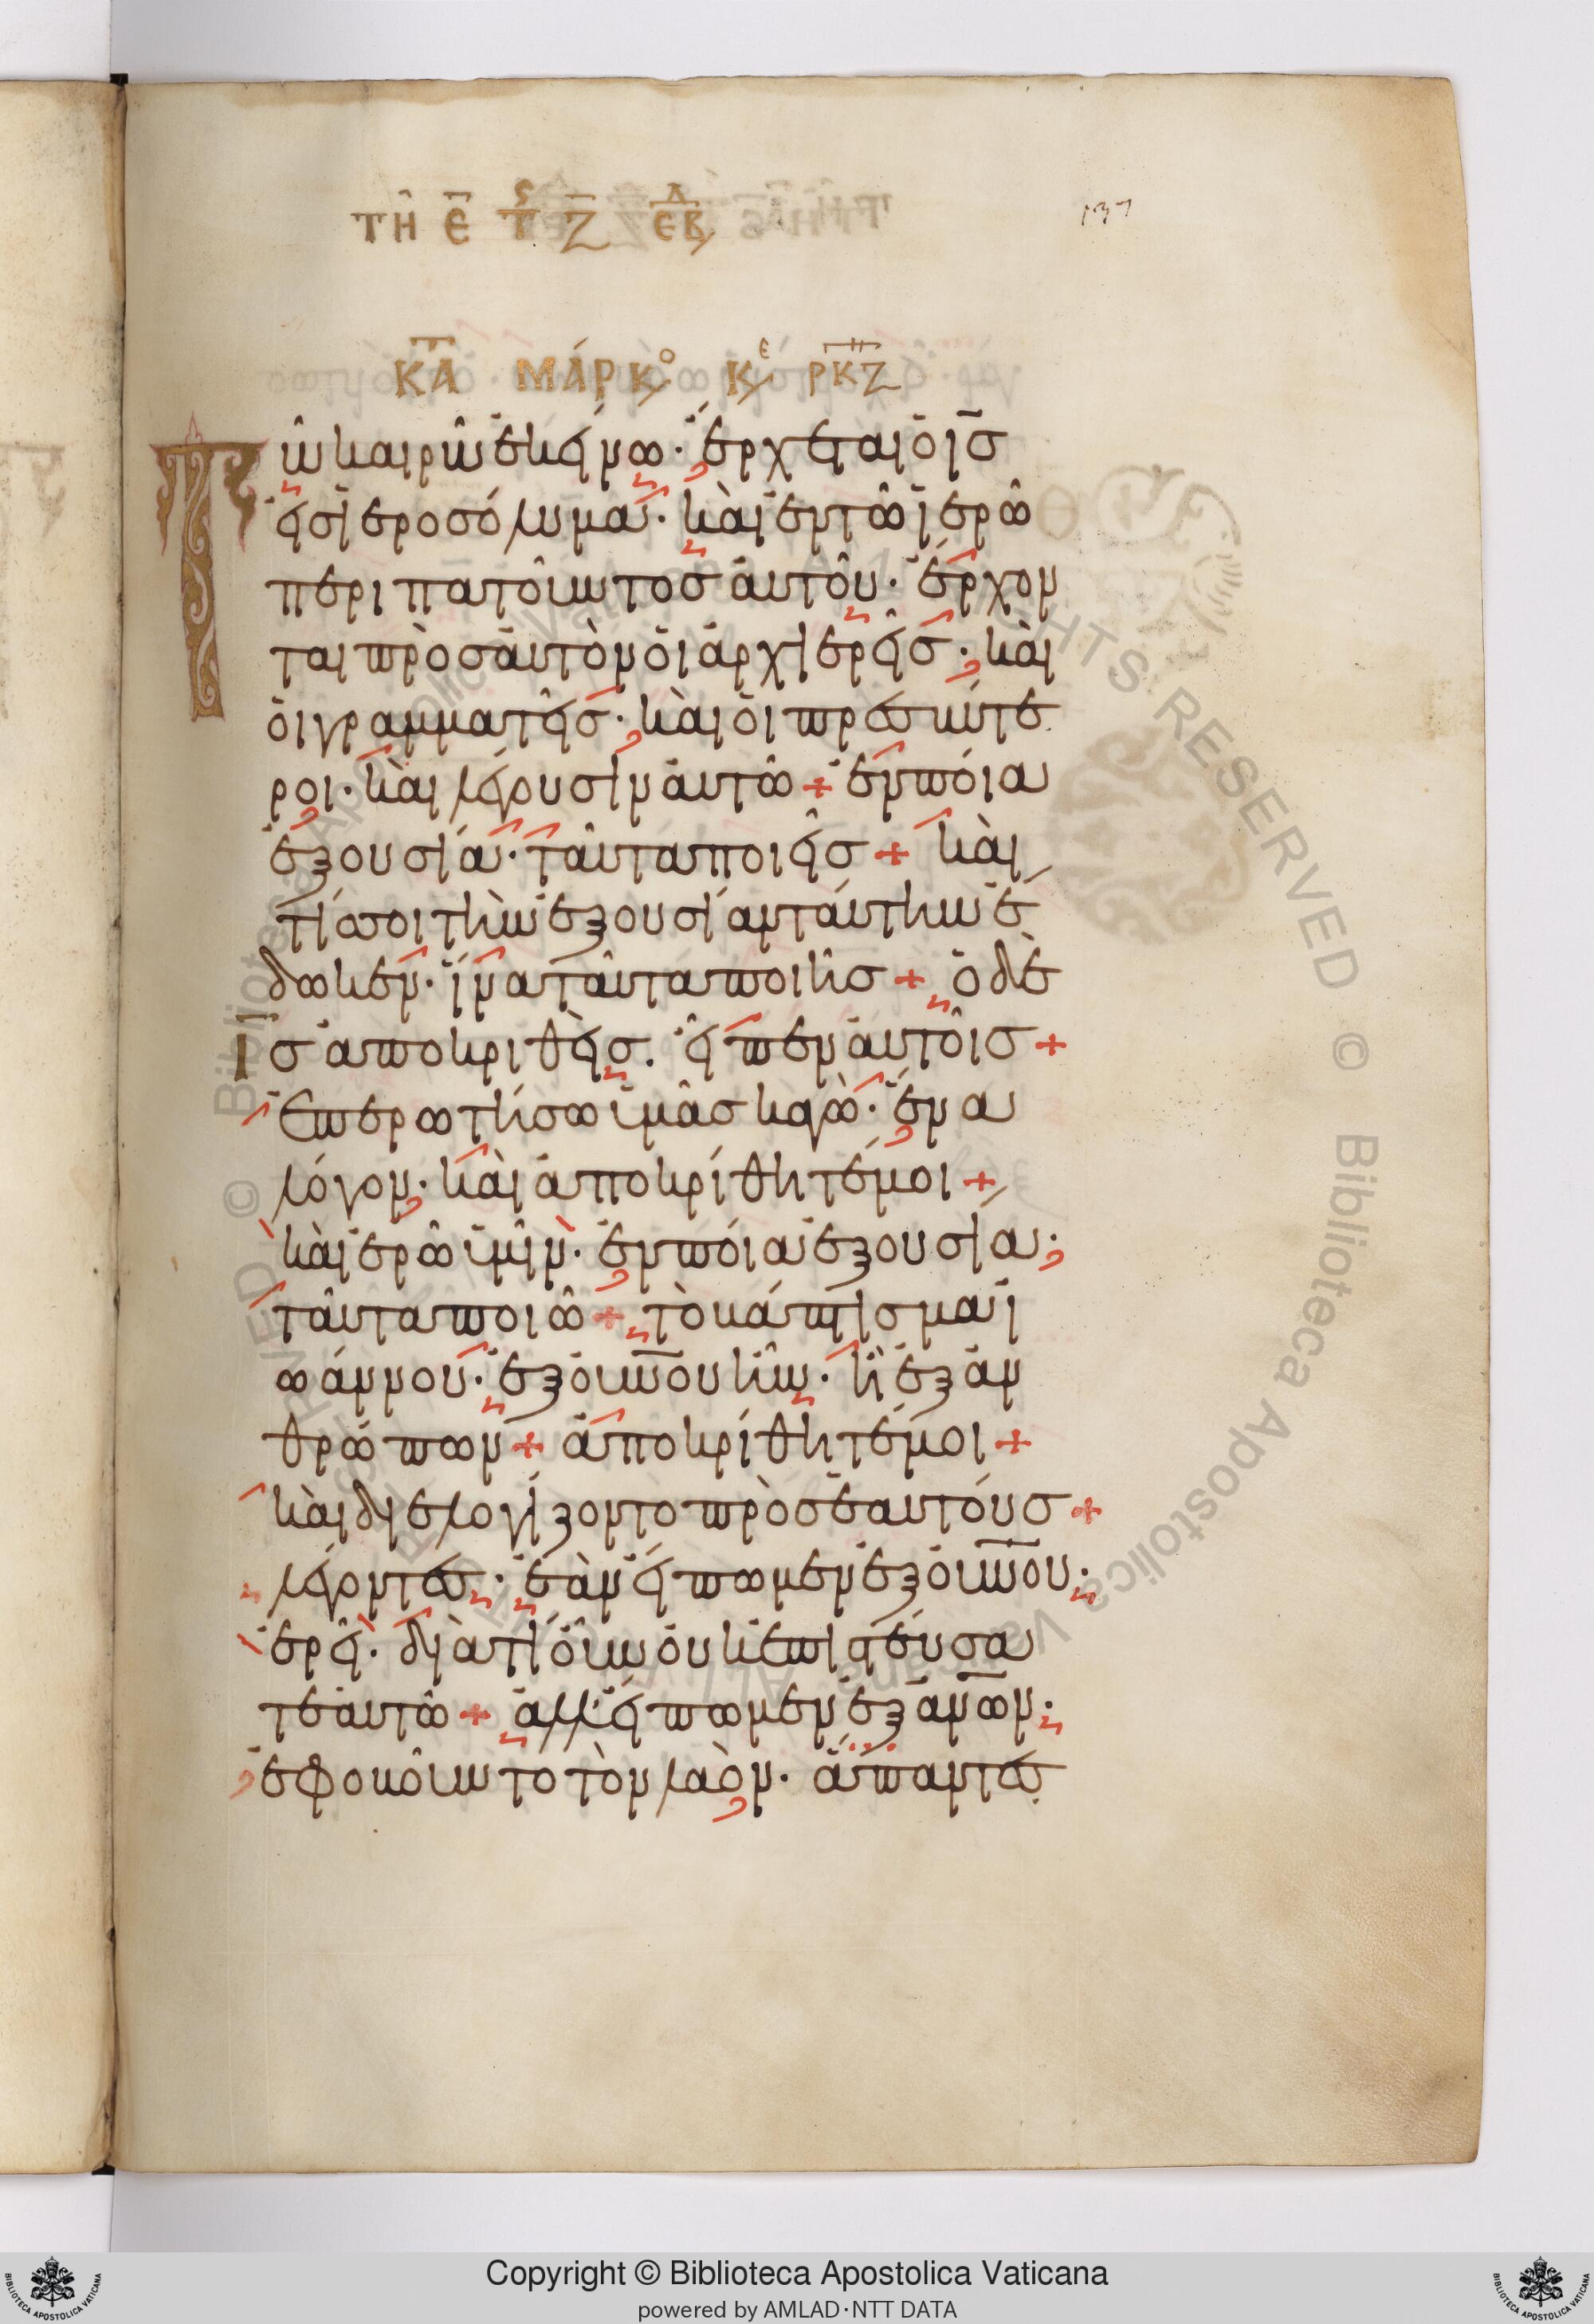 ΤΗ Ε̄ Τ͞ς Ζ̄ ΕΒΔ
137
Κ͞ΑΤ ΜΆΡΚο Κε ΡΚΖ
Τῶ καιρῶ ἐκείνω· ἔρχεται ὁ ι͞ς
εἰς ἱεροσόλυμα· καὶ ἐν τῶ ἱερῶ
περιπατοῦντος αὐτοῦ· ἔρχον
ται πρὸς αὐτὸν οἱ ἀρχιερεῖς· καὶ
οἱ γραμματεῖς· καὶ οἱ πρεσβύτε
ροι· καὶ λέγουσιν αὐτῶ + ἐν ποία
ἐξουσία· ταῦτα ποιεῖς + καὶ
τίς σοι τὴν ἐξουσίαν ταύτην ἔ
δωκεν· ἵνα ταῦτα ποιῆς + ὁ δὲ
ι͞ς ἀποκριθεὶς. εἶπεν αὐτοῖς +
Ἐπερωτήσω ὑμᾶς κἀγὼ· ἕνα
λόγον· καὶ ἀποκρίθητέ μοι +
καὶ ἐρῶ ὑμῖν· ἐν ποία ἐξουσία·
ταῦτα ποιῶ + τὸ βάπτισμα ἰ
ωάννου· ἐξ ο͞υνου ἦν· ἢ ἐξ ἀν
θρώπων + ἀποκρίθητέ μοι +
καὶ διελογίζοντο πρὸς ἑαυτούς +
λέγοντες· ἐὰν εἴπωμεν ἐξ ο͞υνου·
ἐρεῖ· διὰ τί οὖν οὐκ ἐπιστεύσα
τε αὐτῶ + ἀλλ' εἴπωμεν ἐξ α͞νων·
ἐφοβοῦντο τὸν λαόν· ἅπαντες
Copyright © Biblioteca Apostolica Vaticana
powered by AMLAD·NTT DATA